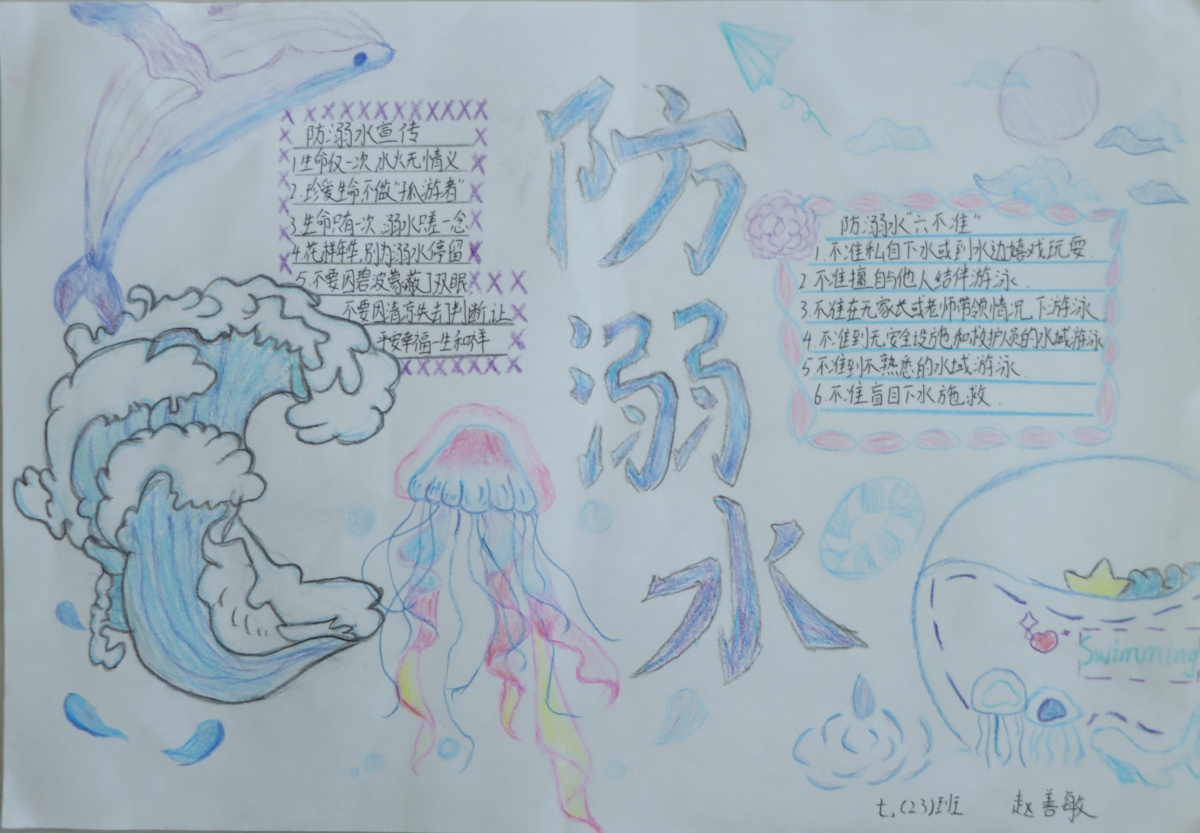 防溺水
防溺水宣传
1.生命仅一次,水火无情义
2.珍爱生命,不做"孤游者"
3.生命只有一次,溺水只差一念
4.花样年华,别为溺水停留
5.不要因碧波蒙蔽了双眼
不要因清凉失去了判断,让
平安幸福一生和祥
防溺水"六不准"
1.不准私自下水或到水边嬉戏玩耍
2.不准擅自与他人结伴游泳.
3.不准在无家长或老师带领情况下游泳
4.不准到无安全设施和救护员的水域游泳
5.不准到不熟悉的水域游泳.
6.不准盲目下水施救.
Swimming
七.(23)班 赵善敏